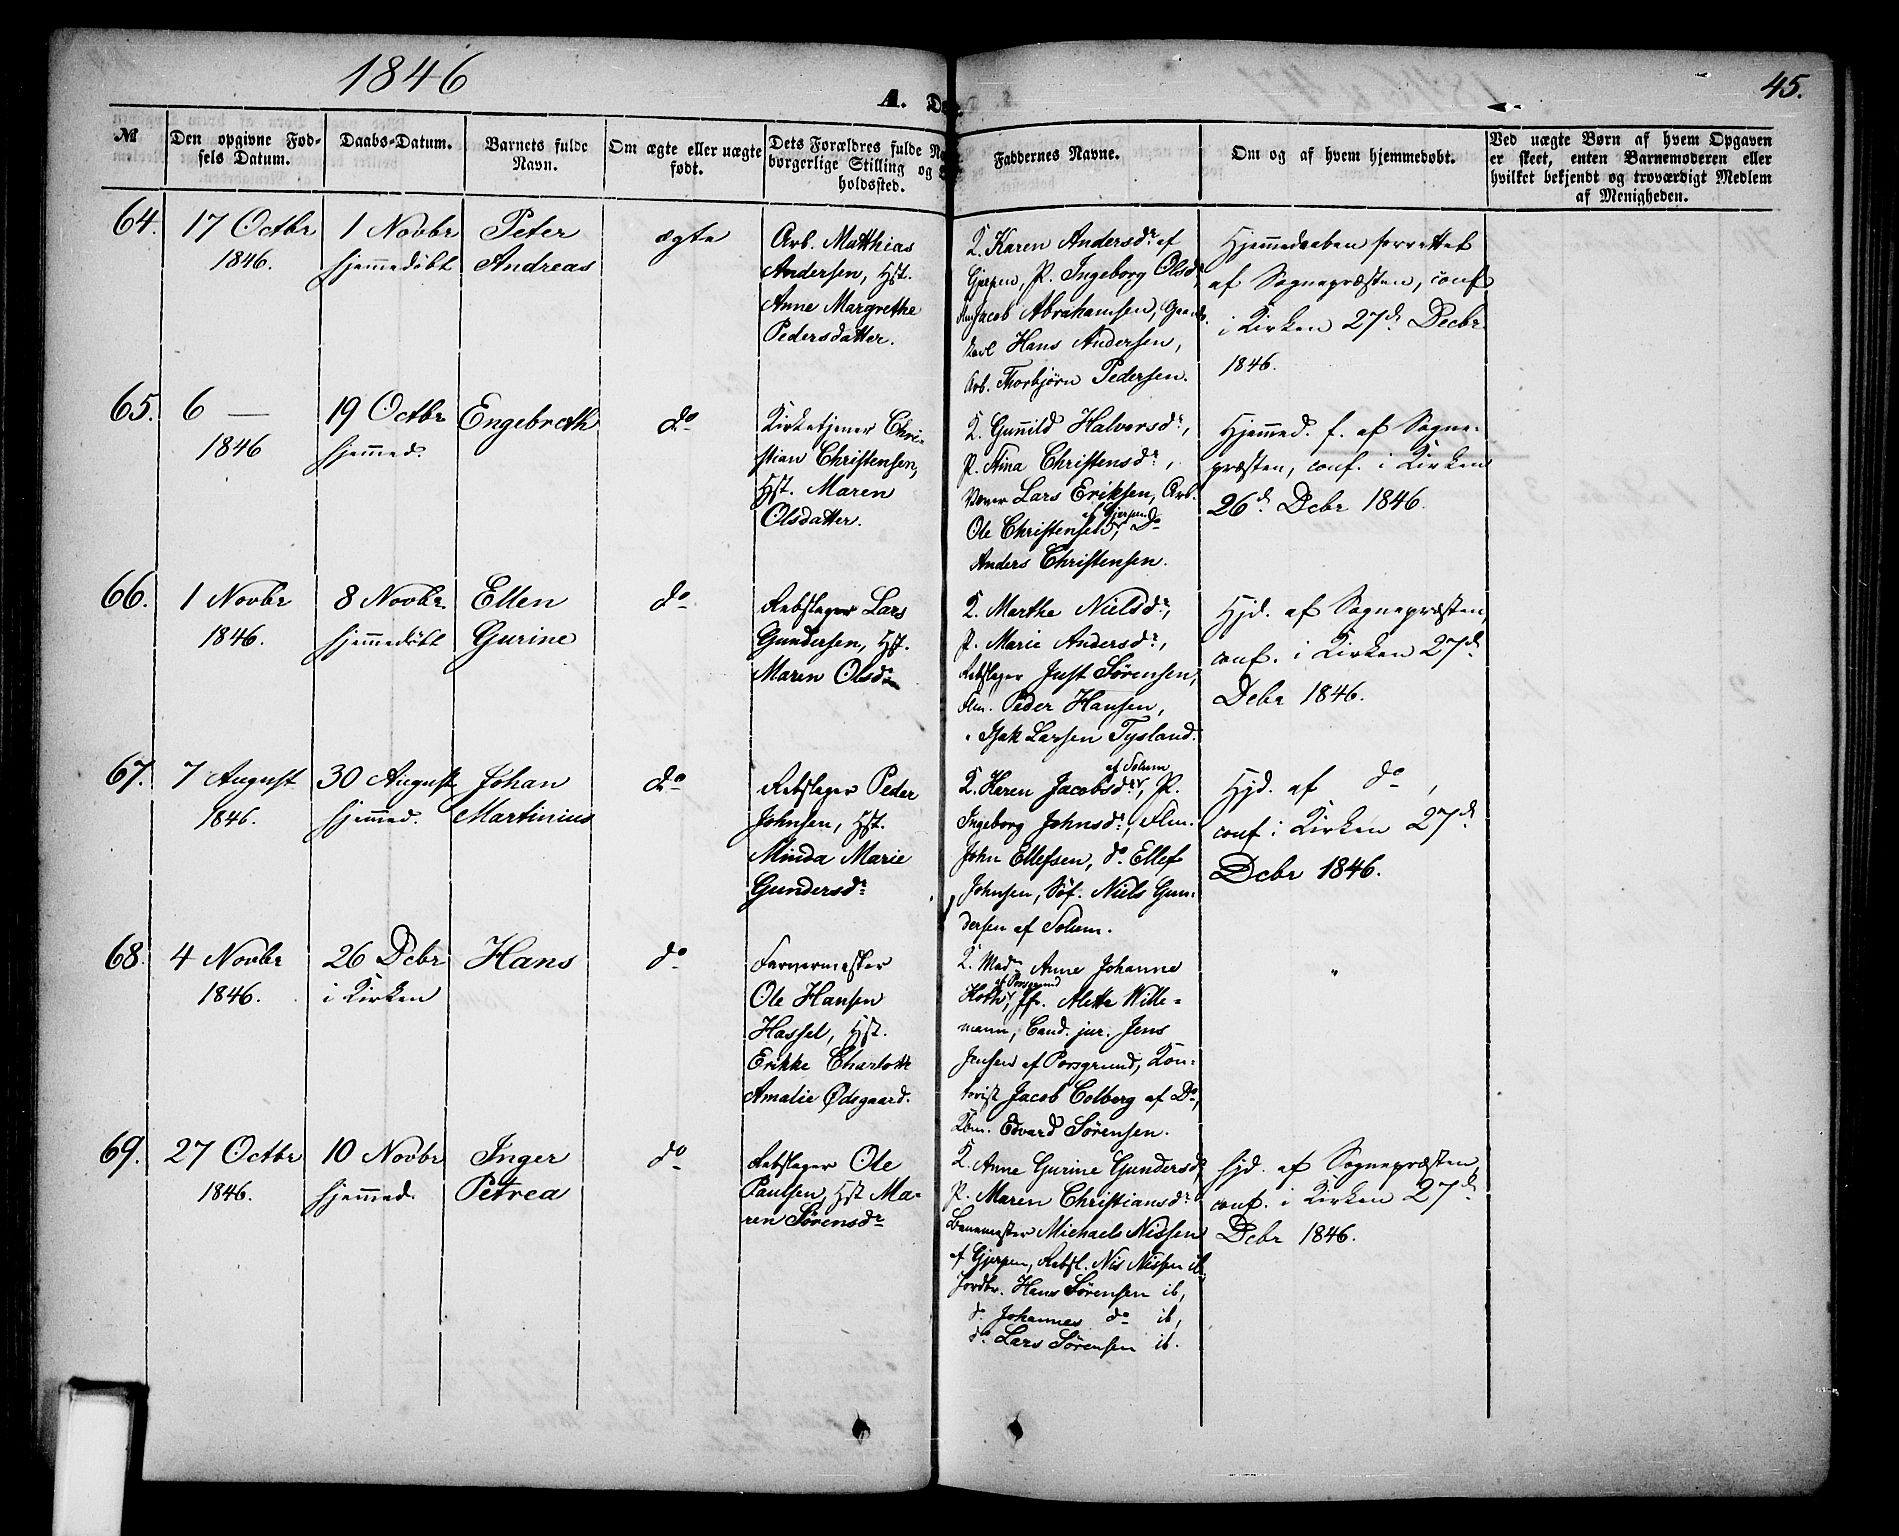 1846
A. Dø
45.
№
Den opgivne Fød-
sels Datum.
Daabs-Datum.
Barnets fulde
Navn.
Om ægte eller uægte
født.
Dets Forældres fulde Na
borgerlige Stilling og O
holdssted.
Faddernes Navne.
Om og af hvem hjemmedøbt.
Ved uægte Børn af hvem Opgaven
er skeet, enten Barnemoderen eller
hvilket bekjendt og troværdigt Medlem
af Menigheden.
64.
17 Octbr
1846.
1 Novbr
hjemmedøbt
Peter
Andreas
ægte
Arb. Matthias
Andersen, Hst.
Anne Margrethe
Pedersdatter.
K. Karen Andersdr. af
Gjerpen, P. Ingeborg Olsdr,
Jacob Abrahamsen, Gaards-
karl Hans Andersen,
Arb. Thorbjørn Pedersen.
Hjemmedaaben forrettet
af Sognepræsten, conf.
i Kirken 27d. Decbr
1846.
65.
6 —
1846
19 Octbr
hjemmed.
Engebreth
do
Kirketjener Chri-
stian Christensen,
Hst. Maren
Olsdatter.
K. Gunild Halvorsdr.,
P. Stina Christensdr.,
Lars Eriksen, Arb.
af Gjerpen
Ole Christensen, Do
Anders Christensen.
Hjemmed. f. af Sogne-
præsten, conf. i Kirken
26d. Debr 1846.
66.
1 Novbr
1846.
8 Novbr.
hjemmedøbt
Ellen
Gurine
do
Rebslager Lars
Gundersen, Hst.
Maren Olsdr
K. Marthe Nielsdr.,
P. Marie Andersdr.,
Rebslager Just Sørensen,
Flm. Peder Hansen,
" Isak Larsen Tysland.
Hjd. af Sognepræsten,
conf. i Kirken 27d.
Debr 1846.
67.
7 August
1846.
30 August
hjemmed.
Johan
Martinius
do
Rebslager Peder
Johnsen, Hst.
Minda Marie
Gundersdr
af Solum
K. Karen Jacobsdr., P.
Ingeborg Johnsdr., Flm.
John Ellefsen, do. Ellef
Johnsen, Søf. Niels Gun-
dersen af Solum.
Hjd. af do,
conf. i Kirken 27d.
Debr 1846.
68.
4 Novbr
1846.
26 Debr
i Kirken
Hans
do
Farvermester
Ole Hansen
Hassel, Hst.
Erikke Charlotte
Amalie Ødsgaard.
K. Mad. Anne Johanne
af Porsgrund
Hoth, Jfr. Alette Wille-
mann, Cand. jur. Jens
Jensen af Porsgrund, Kon-
torist Jacob Colberg af Do,
Kbm. Edvard Sørensen.
"
69.
27 Octbr
1846.
10 Novbr
hjemmed.
Inger
Petrea
do
Rebslager Ole
Paulsen, Hst Ma-
ren Sørensdr
K. Anne Gurine Gundersdr,
P. Maren Christiansdr.
Michaels Nissen
af Gjerpen, Rebsl. Nis Nissen ib,
Jordbr. Hans Sørensen ib,
do. Johannes do ib,
do. Lars Sørensen ib.
Hjd. af Sognepræsten,
conf. i Kirken 27d.
Debr 1846.